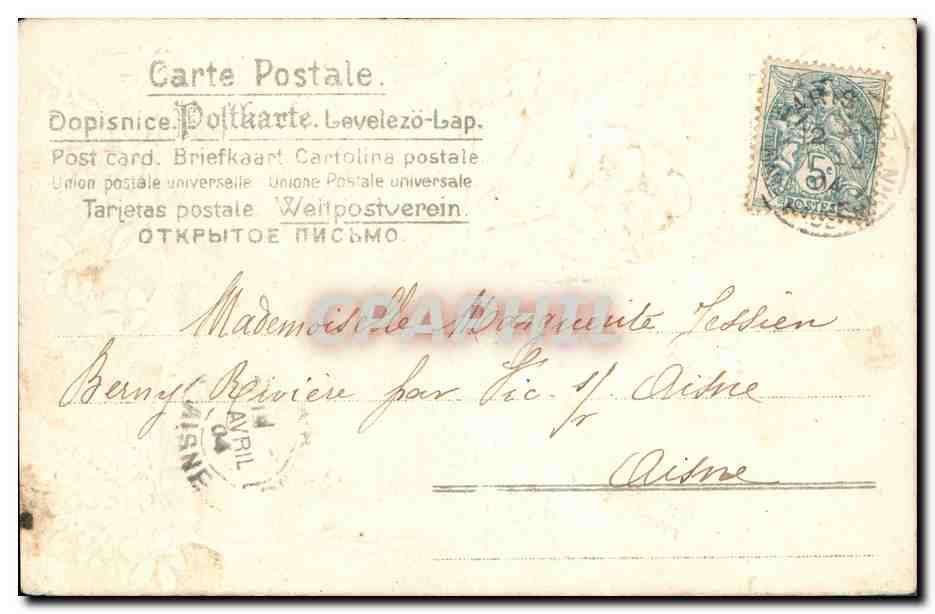 Carte Postale.
Dopisnice. Postkarte. Levelezö-Lap.
Post card. Briefkaart Cartolina postale
Union postale universelle Unione Postale universale
Tarjetas postale Weltpostverein.
ОТКРЫТОЕ ПИСЬМО.
PARIS
5c
04
POSTES
CPAPHIL
Mademoiselle Marguerite Tessien
Berny Rivière par Vic s/ Aisne
Aisne
AVRIL
04
AISNE